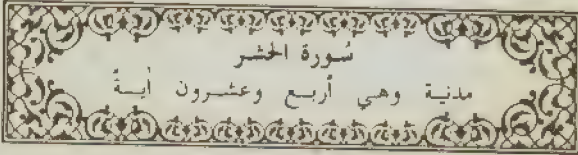 سُورة الحشر
مدنية وهي أربع وعشرون أيةً